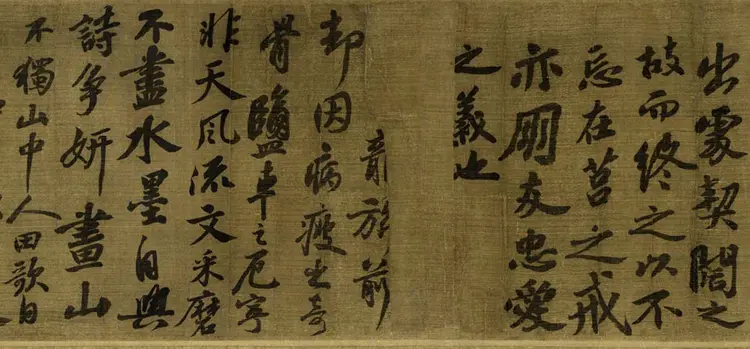 出處契闊之
故而終之以不
忘在莒之戒
亦朋友忠愛
之義也
龍旂前
却因病瘦出奇
骨鹽車之厄寧
非天風流文采磨
不盡水墨自與
詩爭妍畫山
不獨山中人田歌自